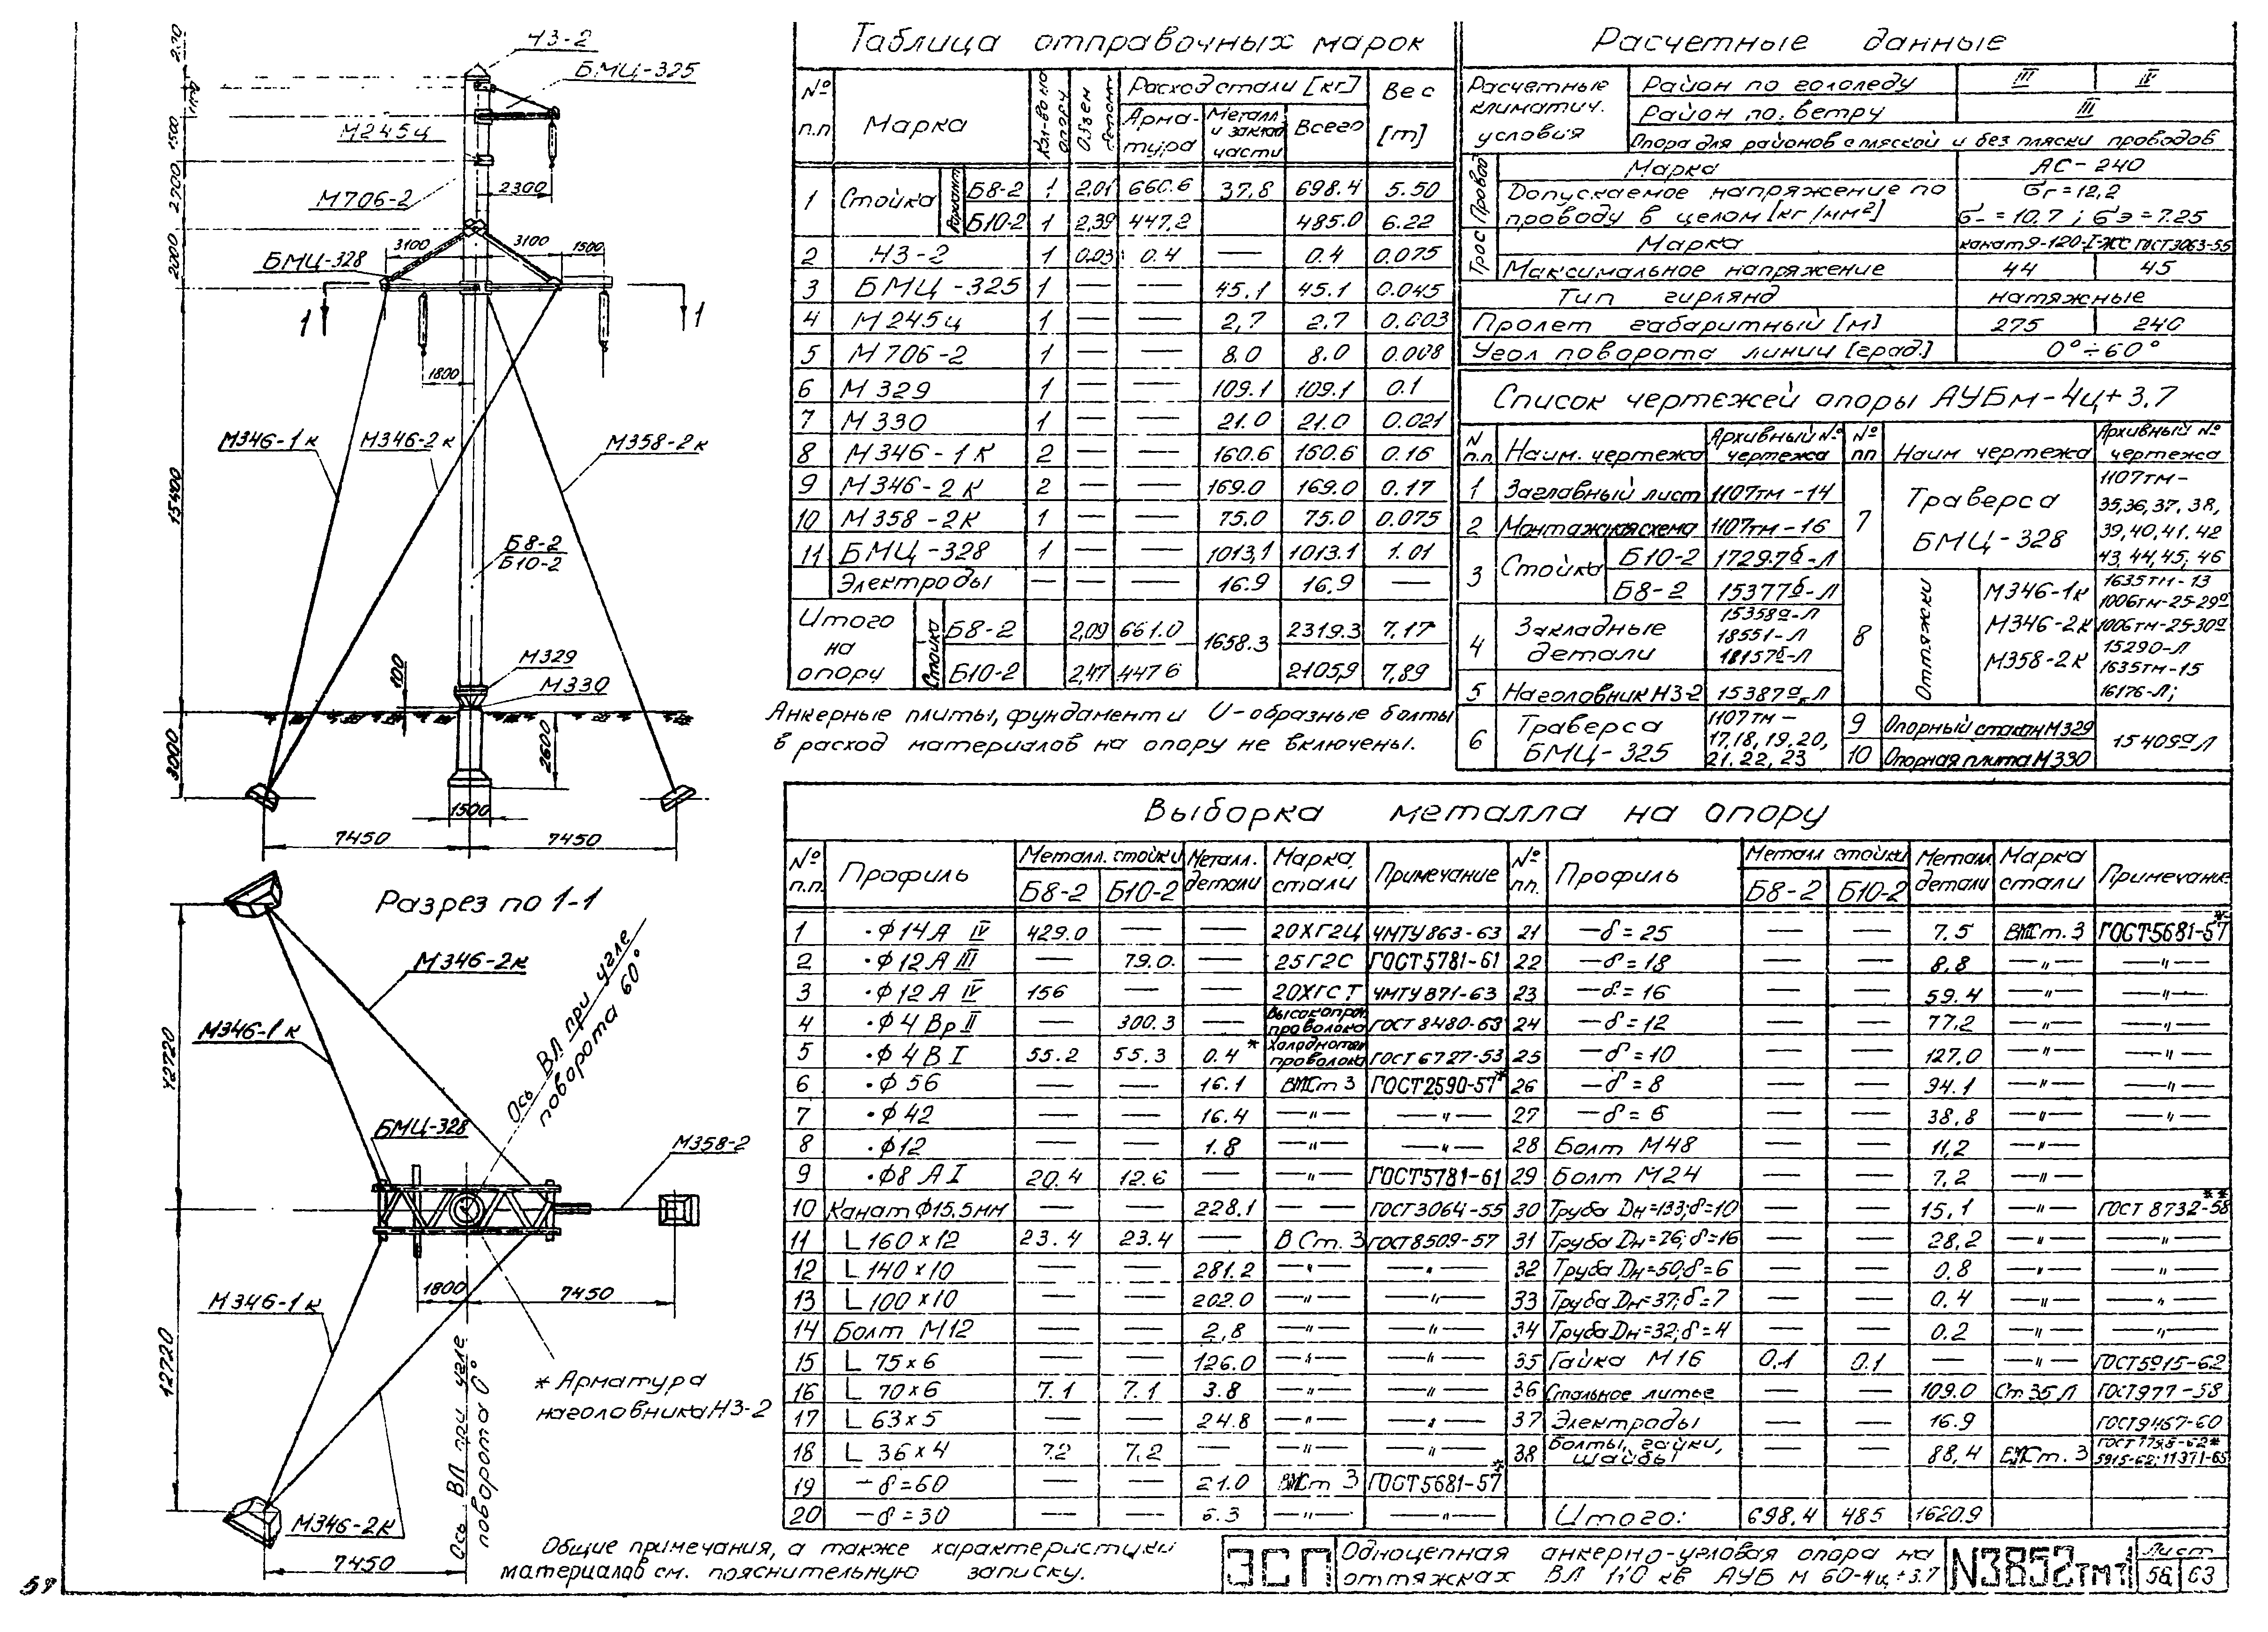 НЗ-2
БМЦ-325
М245ц
М706-2
2300
3100 3100 1500
БМЦ-328
1 1
1500
2700
2000
15400
3000
1800
М346-1к М346-2к М358-2к
Б8-2
Б10-2
М329
М330
100
2600
1500
7450 7450
Разрез по 1-1
М346-2к
М346-1к
Ось ВЛ при угле
поворота 60°
12720
БМЦ-328
М358-2
1800 7450
М346-1к
12720
Ось ВЛ при угле
поворота 0°
* Арматура
наголовника НЗ-2
М346-2к
7450
Таблица отправочных марок
№ п.п Марка Кол-во на опору Объем бетона Расход стали [кг] Вес [т]
Арматура Металл и заклад части Всего
1 Стойка Вариант Б8-2 1 2,01 660.6 37,8 698.4 5.50
Б10-2 1 2,39 447,2 485.0 6.22
2 НЗ-2 1 0.03 0.4 — 0.4 0.075
3 БМЦ-325 1 — — 45.1 45.1 0.045
4 М245ц 1 — — 2,7 2.7 0.003
5 М706-2 1 — — 8.0 8.0 0.008
6 М329 1 — — 109.1 109.1 0.1
7 М330 1 — — 21.0 21.0 0.021
8 М346-1К 2 — — 160.6 160.6 0.16
9 М346-2К 2 — — 169.0 169.0 0.17
10 М358-2К 1 — — 75.0 75.0 0.075
11 БМЦ-328 1 — — 1013,1 1013.1 1.01
Электроды — — — 16.9 16.9 —
Итого на опору Стойка Б8-2 2,09 661.0 1658.3 2319.3 7,17
Б10-2 2,47 447 6 2105,9 7,89
Анкерные плиты, фундамент и U-образные болты
в расход материалов на опору не включены.
Расчетные данные
Расчетные климатич. условия Район по гололеду III IV
Район по ветру III
Опора для районов с пляской и без пляски проводов
Провод Марка АС-240
Допускаемое напряжение по σг=12,2
проводу в целом [кг/мм²] σ-=10,7; σэ=7.25
Трос Марка канат 9-120-I-ЖС ГОСТ3063-55
Максимальное напряжение 44 45
Тип гирлянд натяжные
Пролет габаритный [м] 275 240
Угол поворота линии [град.] 0°÷60°
Список чертежей опоры АУБм-4ц+3.7
N п.п Наим. чертежа Архивный № чертежа № пп Наим чертежа Архивный № чертежа
1 Заглавный лист 1107тм-14
2 Монтажная схема 1107тм-16
3 Стойка Б10-2 17297б-Л
Б8-2 15377б-Л
4 Закладные детали 15358а-Л
18551-Л
18157б-Л
5 Наголовник НЗ-2 15387а-Л
6 Траверса БМЦ-325 1107тм-
17,18,19,20,
21,22,23
7 Траверса БМЦ-328 1107тм-
35,36,37,38,
39,40,41,42
43,44,45,46
8 Оттяжки М346-1к М346-2к М358-2к
1635тм-13
1006тм-25-29а
1006тм-25-30а
15290-Л
1635тм-15
16176-Л;
9 Опорный стакан М329 15409а Л
10 Опорная плита М330
Выборка металла на опору
№ п.п. Профиль Металл. стойки Б8-2 Б10-2 Металл. детали Марка стали Примечание
1 ·Ф14А IV 429.0 — — 20ХГ2Ц ЧМТУ863-63
2 ·Ф12А III — 79.0 — 25Г2С ГОСТ5781-61
3 ·Ф12А IV 156 — — 20ХГСТ ЧМТУ871-63
4 ·Ф4 Вр II — 300.3 — Высокопроч проволока ГОСТ 8480-63
5 ·Ф4 В I 55.2 55.3 0.4* Холоднотян проволока ГОСТ6727-53
6 ·Ф56 — — 16.1 ВМСт 3 ГОСТ2590-57*
7 ·Ф42 — — 16.4 —"— —"—
8 ·Ф12 — — 1.8 —"— —"—
9 ·Ф8 А I 20.4 12.6 — —"— ГОСТ5781-61
10 Канат Ф15,5мм 228.1 — — ГОСТ3064-55
11 L 160×12 23.4 23.4 — ВСт.3 ГОСТ8509-57
12 L 140×10 — — 281.2 —"— —"—
13 L 100×10 — — 202.0 —"— —"—
14 Болт М12 — — 2,8 —"— —"—
15 L 75×6 — — 126.0 —"— —"—
16 L 70×6 7.1 7.1 3.8 —"— —"—
17 L 63×5 — — 24.8 —"— —"—
18 L 36×4 7.2 7,2 — —"— —"—
19 —δ=60 — — 21.0 ВМСт 3 ГОСТ5681-57*
20 —δ=30 — — 6.3 —"— —"—
№ пп. Профиль Металл стойки Б8-2 Б10-2 Металл детали Марка стали Примечание
21 —δ=25 — — 7.5 ВМСт.3 ГОСТ5681-57*
22 —δ=18 — — 8,8 —"— —"—
23 —δ=16 — — 59.4 —"— —"—
24 —δ=12 — — 77.2 —"— —"—
25 —δ=10 — — 127.0 —"— —"—
26 —δ=8 — — 94.1 —"— —"—
27 —δ=6 — — 38,8 —"— —"—
28 Болт М48 — — 11,2 —"—
29 Болт М24 — — 7,2 —"—
30 Труба Dн=133;δ=10 15,1 —"— ГОСТ 8732-58**
31 Труба Dн=76;δ=16 28,2 —"— —"—
32 Труба Dн=50;δ=6 — — 0.8 —"— —"—
33 Труба Dн=37;δ=7 — — 0.4 —"— —"—
34 Труба Dн=32;δ=4 — — 0.2 —"— —"—
35 Гайка М16 0.1 0.1 — —"— ГОСТ5915-62
36 Стальное литье — — 109.0 Ст.35Л ГОСТ977-58
37 Электроды — — 16.9 ГОСТ9467-60
38 Болты, гайки, шайбы — — 88,4 ВМСт.3 ГОСТ7798-62* 5915-62; 11371-65
Итого: 698,4 485 1620.9
Общие примечания, а также характеристики
материалов см. пояснительную записку.
ЭСП
Одноцепная анкерно-угловая опора на
оттяжках ВЛ 110 кв АУБ м 60-4ц+3.7
N3852тмт1
Лист
56 63